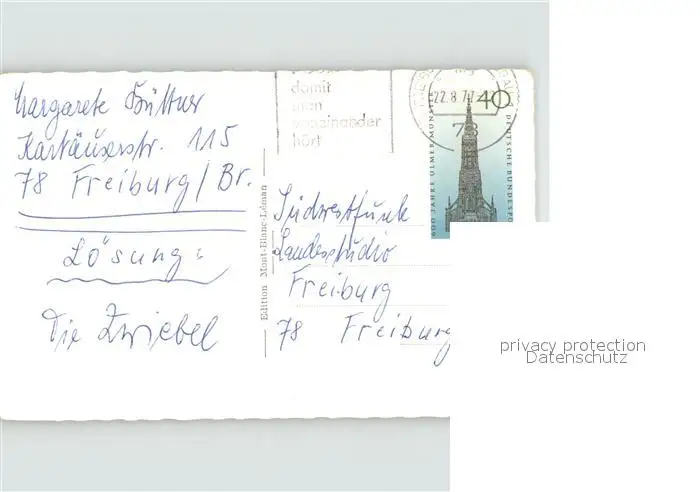 Margarete Büttner
Kartäuserstr. 115
78 Freiburg/Br.
Lösung:
Die Zwiebel
damit
man
voneinander
hört
22.8.77
78
40
600 JAHRE ULMER MÜNSTER
DEUTSCHE BUNDESPO
Edition Mont-Blanc-Léman
Südwestfunk
Landesstudio
Freiburg
78 Freiburg
privacy protection
Datenschutz